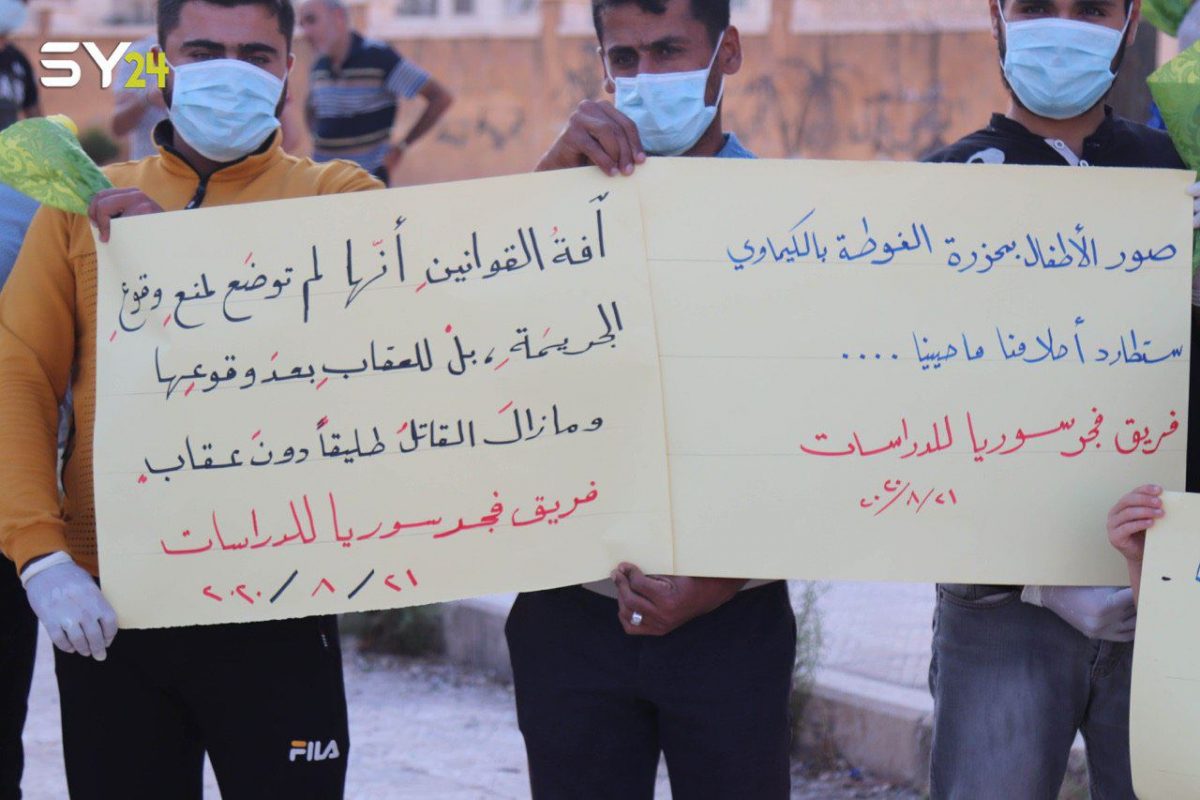 SY24
صور الأطفال بمجزرة الغوطة بالكيماوي
ستطارد أحلامنا ما حيينا ....
فريق فجر سوريا للدراسات
٢٠٢٠/٨/٢١
آفةُ القوانينِ أنّها لم توضَع لمنعِ وقوعِ
الجريمَةِ، بلْ للعقابِ بعدَ وقوعِها
ومازالَ القاتلُ طليقاً دونَ عقابٍ
فريق فجر سوريا للدراسات
٢٠٢٠/٨/٢١
FILA